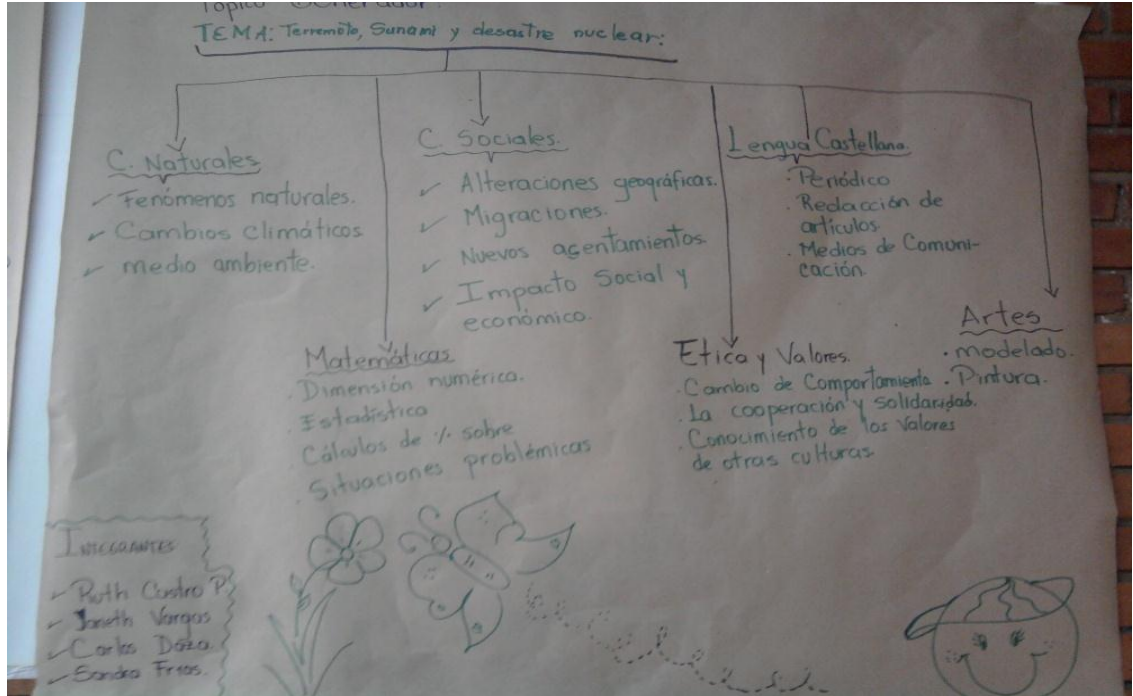 Tópico Generador.
TEMA: Terremoto, Sunami y desastre nuclear:
C. Naturales
✓ Fenómenos naturales.
✓ Cambios climáticos
✓ medio ambiente.
C. Sociales.
✓ Alteraciones geográficas.
✓ Migraciones.
✓ Nuevos asentamientos.
✓ Impacto Social y
económico.
Lengua Castellana.
· Periódico
· Redacción de
artículos.
· Medios de Comuni-
cación.
Matemáticas.
· Dimensión numérica.
· Estadística
· Cálculos de % sobre
· Situaciones problémicas
Etica y Valores.
· Cambio de Comportamiento.
· La cooperación y solidaridad.
· Conocimiento de los Valores
de otras culturas
Artes
· modelado.
· Pintura.
INTEGRANTES
✓ Ruth Castro P
✓ Janeth Vargas
✓ Carlos Daza.
✓ Sandra